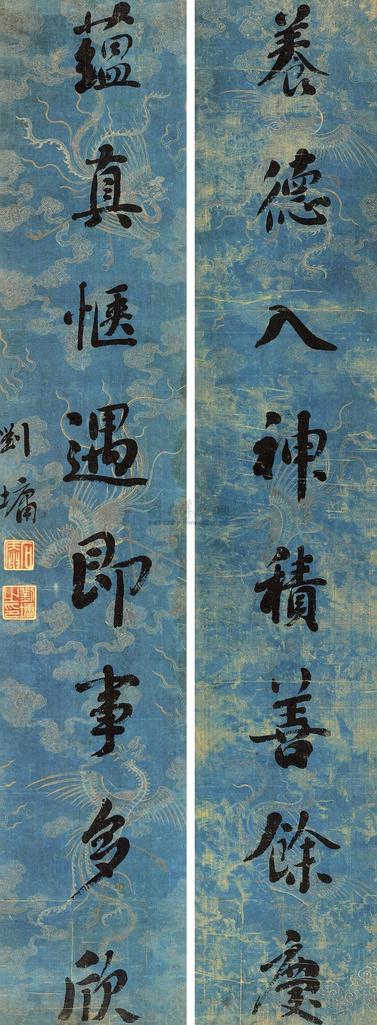 養德入神積善餘慶
蘊真愜遇即事多欣
劉墉